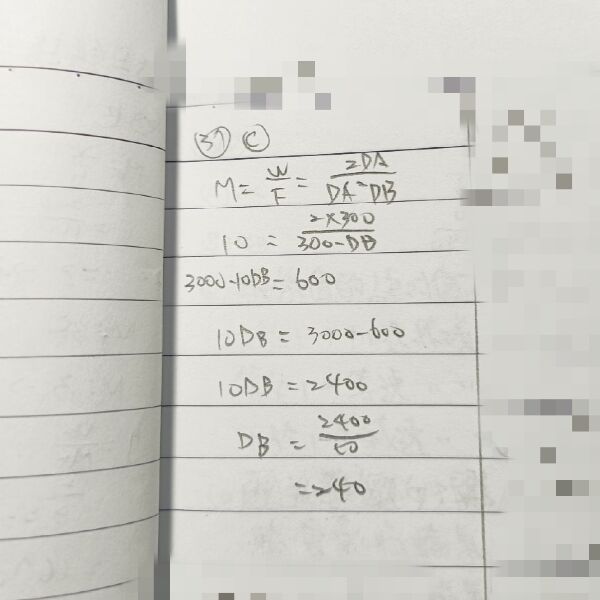 37 C
M = W/F = 2DA/DA-DB
10 = 2×300/300-DB
3000-10DB = 600
10DB = 3000-600
10DB = 2400
DB = 2400/10
=240